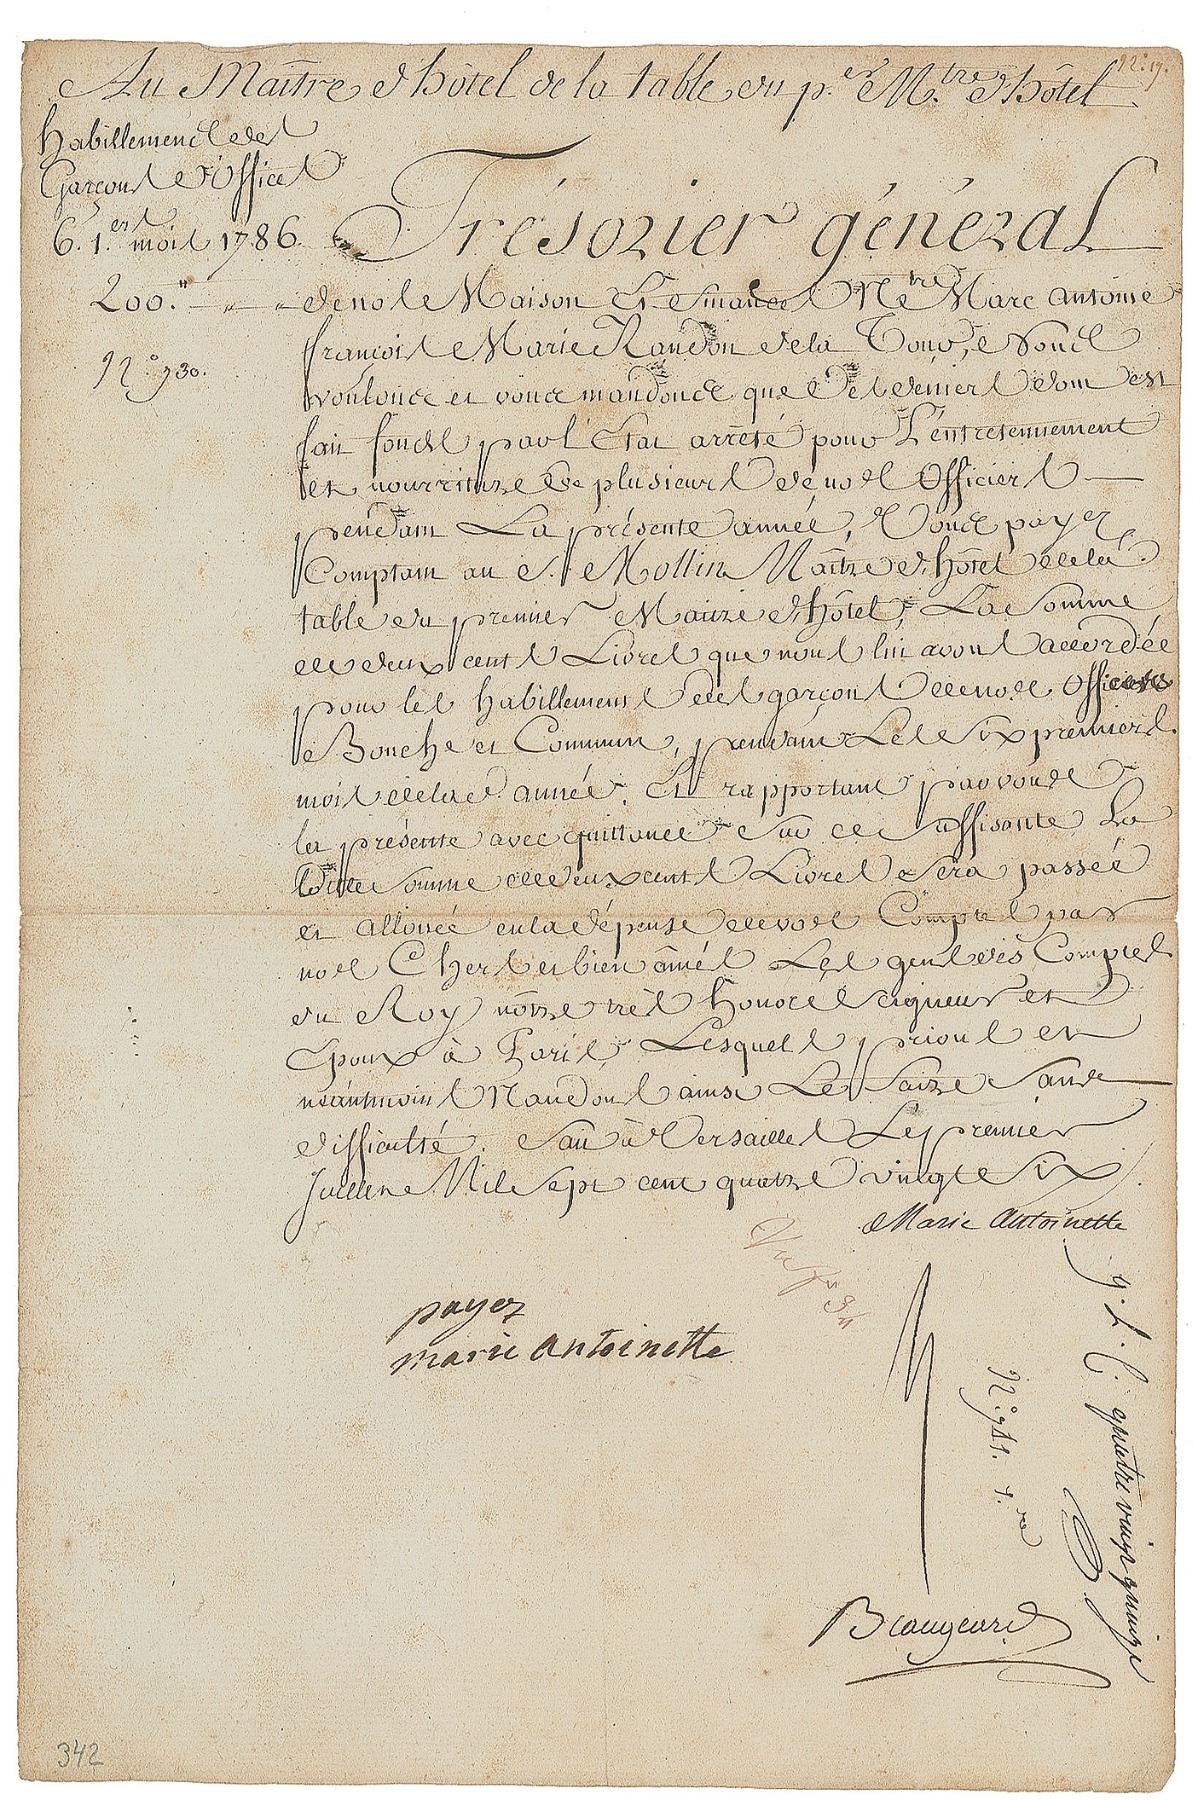 Au Maître d'hôtel de la table du p.er M.tre d'hôtel
N.° 19.
habillement des
Garçons d'Offices
6. 1.ers mois 1786.
200.tt " "
N.° 930.
Trésorier général
de nos Maison et finances M.tre Marc Antoine
françois Marie Randon de la Tour, Nous
voulons et vous mandons que des deniers dont est
fait fonds par l'Etat arrêté pour L'entretennement
et nourriture de plusieurs de nos Officiers
pendant La présente année, Vous payez
Comptant au S.r Mollin Maître d'hôtel de la
table du premier Maitre d'hôtel, La Somme
de deux cents Livres que nous lui avons accordée
pour les habillements des garçons de nos Offices
Bouche et Commun, pendant Les Six premiers
mois de la d. année. Et rapportant par vous
les présente avec quittance sur ce suffisante La
ditte Somme de deux cents Livres Sera passée
et allouée en la dépense de vos Comptes par
nos Chers et bien âmés Les gens des Comptes
du Roy nôtre très honoré Seigneur et
Epoux à Paris, Lesquels prions et
néantmoins Mandons ainsi Le faire Sans
difficulté. Fait à Versailles Le premier
Juillet Mil sept cent quatre vingt Six
Marie Antoinette
payez
marie antoinette
N.° 941. 4.
quatre vingt quinze
Beaugeard
342